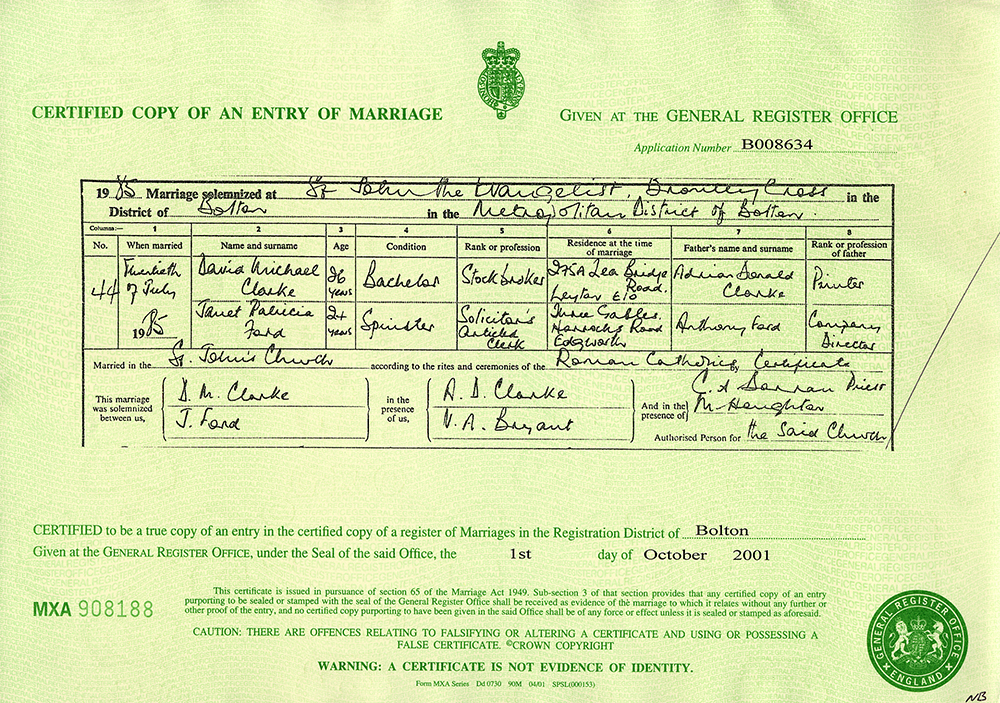 CERTIFIED COPY OF AN ENTRY OF MARRIAGE
GIVEN AT THE GENERAL REGISTER OFFICE
Application Number B008634
1985 Marriage solemnized at St John the Evangelist, Bromley Cross in the
District of Bolton in the Metropolitan District of Bolton.
Columns:— 1 2 3 4 5 6 7 8
No. When married Name and surname Age Condition Rank or profession Residence at the time of marriage Father's name and surname Rank or profession of father
44 Twentieth of July 1985
David Michael Clarke 26 years Bachelor Stockbroker 275A Lea Bridge Road. Leyton E10 Adrian Donald Clarke Printer
Janet Patricia Ford 24 years Spinster Solicitor's Articled Clerk Three Gables. Horrocks Road Edgworth Anthony Ford Company Director
Married in the St. John's Church according to the rites and ceremonies of the Roman Catholics by Certificate
This marriage was solemnized between us,
D. M. Clarke
J. Ford
in the presence of us,
A. D. Clarke
V. A. Bryant
C. A Priest
And in the presence of M. Haughton
Authorised Person for the Said Church
CERTIFIED to be a true copy of an entry in the certified copy of a register of Marriages in the Registration District of Bolton
Given at the GENERAL REGISTER OFFICE, under the Seal of the said Office, the 1st day of October 2001
MXA 908188
This certificate is issued in pursuance of section 65 of the Marriage Act 1949. Sub-section 3 of that section provides that any certified copy of an entry
purporting to be sealed or stamped with the seal of the General Register Office shall be received as evidence of the marriage to which it relates without any further or
other proof of the entry, and no certified copy purporting to have been given in the said Office shall be of any force or effect unless it is sealed or stamped as aforesaid.
CAUTION: THERE ARE OFFENCES RELATING TO FALSIFYING OR ALTERING A CERTIFICATE AND USING OR POSSESSING A
FALSE CERTIFICATE. ©CROWN COPYRIGHT
WARNING: A CERTIFICATE IS NOT EVIDENCE OF IDENTITY.
Form MXA Series Dd 0730 90M 04/01 SPSL(000153)
GENERAL REGISTER OFFICE
ENGLAND
NB